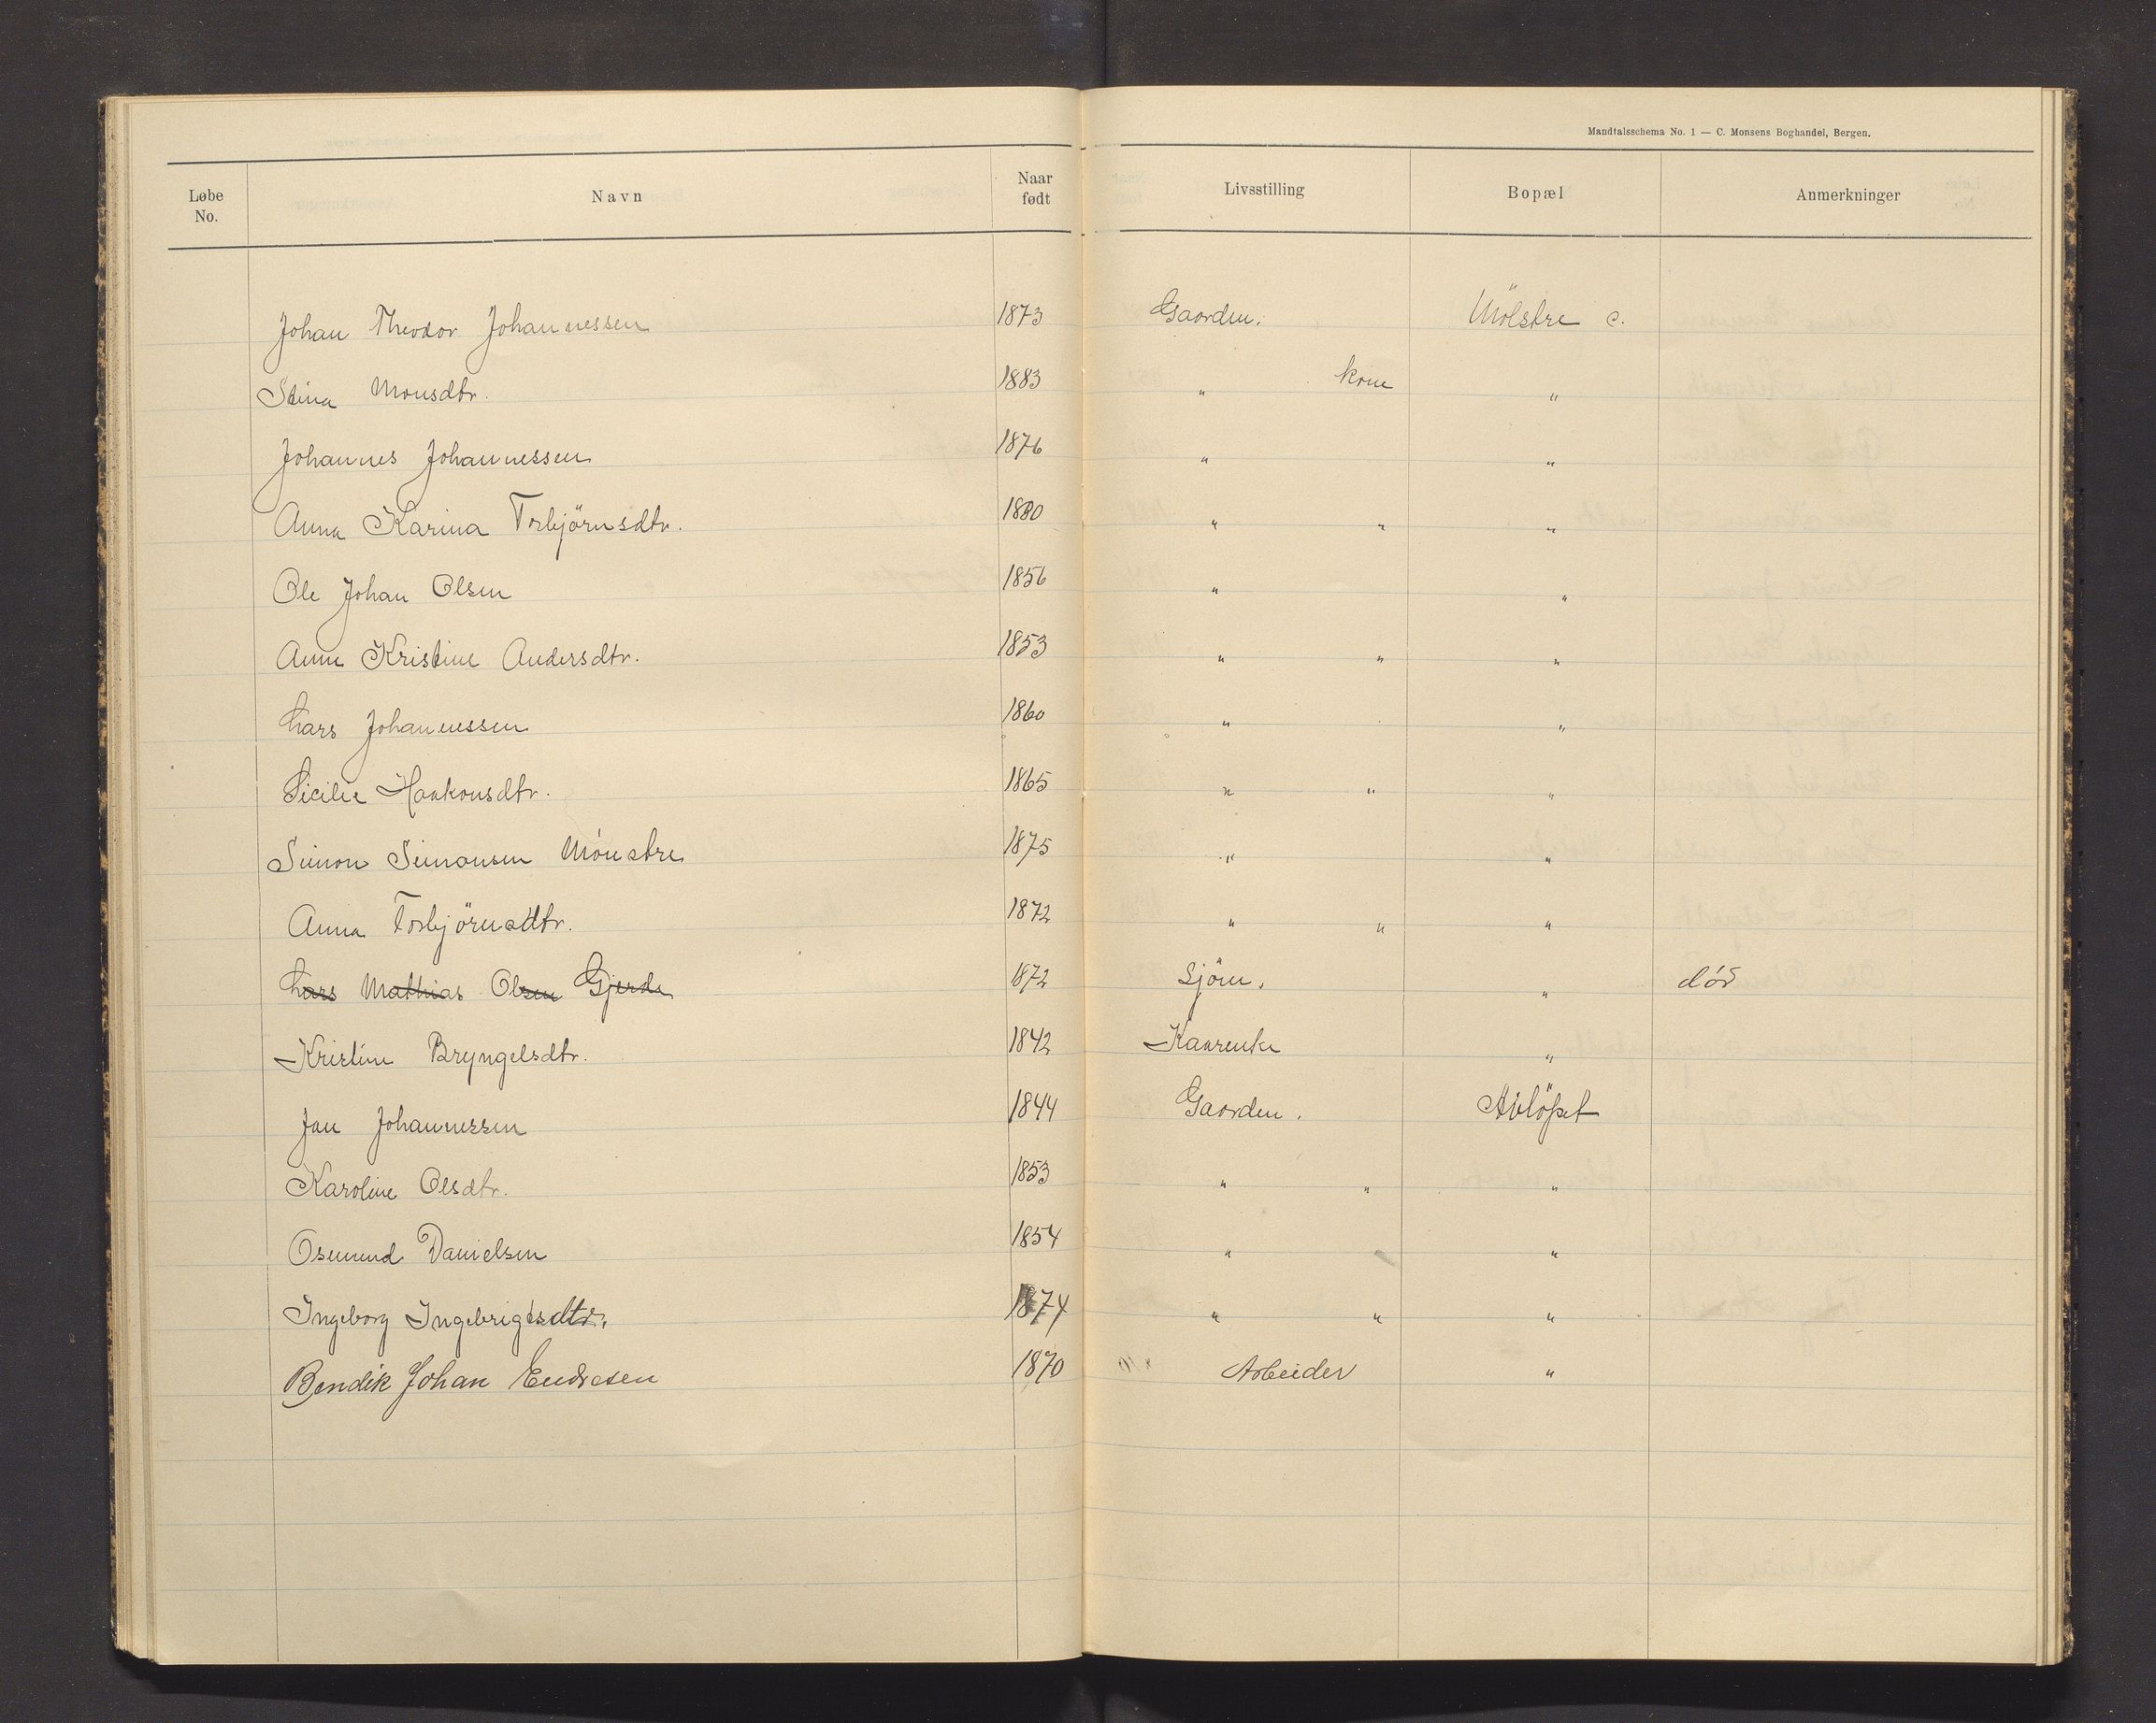 Mandtalsschema No. 1 — C. Monsens Boghandel, Bergen.
Løbe No. Navn Naar født Livsstilling Bopæl Anmerkninger
Johan Theodor Johannessen 1873 Gaardm. Mölstre c.
Stina Monsdtr. 1883 " kone "
Johannes Johannessen 1876 " "
Anna Karina Torbjörnsdtr. 1880 " " "
Ole Johan Olsen 1856 " "
Anne Kristine Andersdtr. 1853 " " "
Lars Johannessen 1860 " "
Sicilie Haakonsdtr. 1865 " " "
Simon Simonsen Mönstre 1875 " "
Anna Torbjörnsdtr. 1872 " " "
Lars Mathias Olsen Gjerde 1872 Sjöm. " död
Kristine Bryngelsdtr. 1842 Kaarenke "
Jan Johannessen 1844 Gaardm. Avlöpet
Karoline Olsdtr. 1853 " " "
Osmund Danielsen 1854 " "
Ingeborg Ingebrigtsdtr. 1874 " " "
Bendik Johan Endresen 1870 Arbeider "